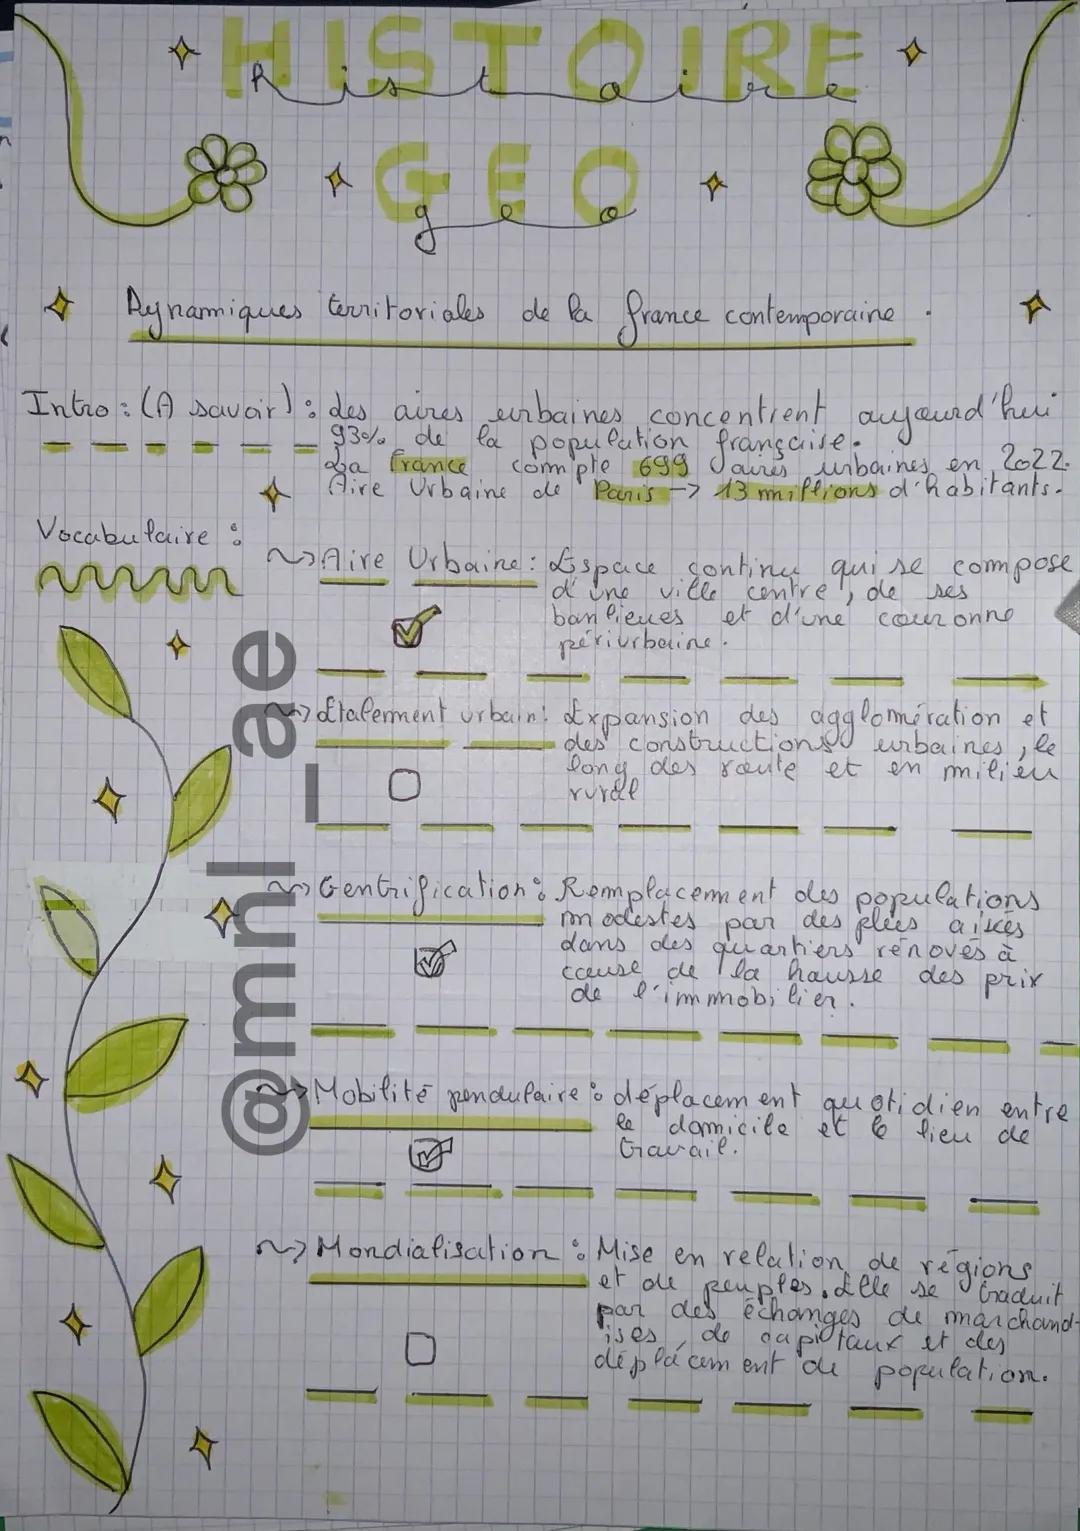 HISTOIRE
histoire
GEO
geo
Dynamiques territoriales de la france contemporaine.
Intro : (A savoir) : des aires urbaines concentrent aujourd'hui
93% de la population française.
La france compte 699 aires urbaines en 2022.
Aire Urbaine de Paris -> 13 millions d'habitants.
Vocabulaire :
~> Aire Urbaine : Espace continu qui se compose
d'une ville centre, de ses
banlieues et d'une couronne
périurbaine.
~> Etalement urbain : Expansion des agglomération et
des constructions urbaines, le
long des route et en milieu
rural
~> Gentrification : Remplacement des populations
modestes par des plus aisées
dans des quartiers rénovés à
cause de la hausse des prix
de l'immobilier.
~> Mobilité pendulaire : déplacement quotidien entre
le domicile et le lieu de
travail.
~> Mondialisation : Mise en relation de régions
et de peuples. Elle se traduit
par des échanges de marchand-
ises, de capitaux et des
déplacement de population.
@mnl_ae